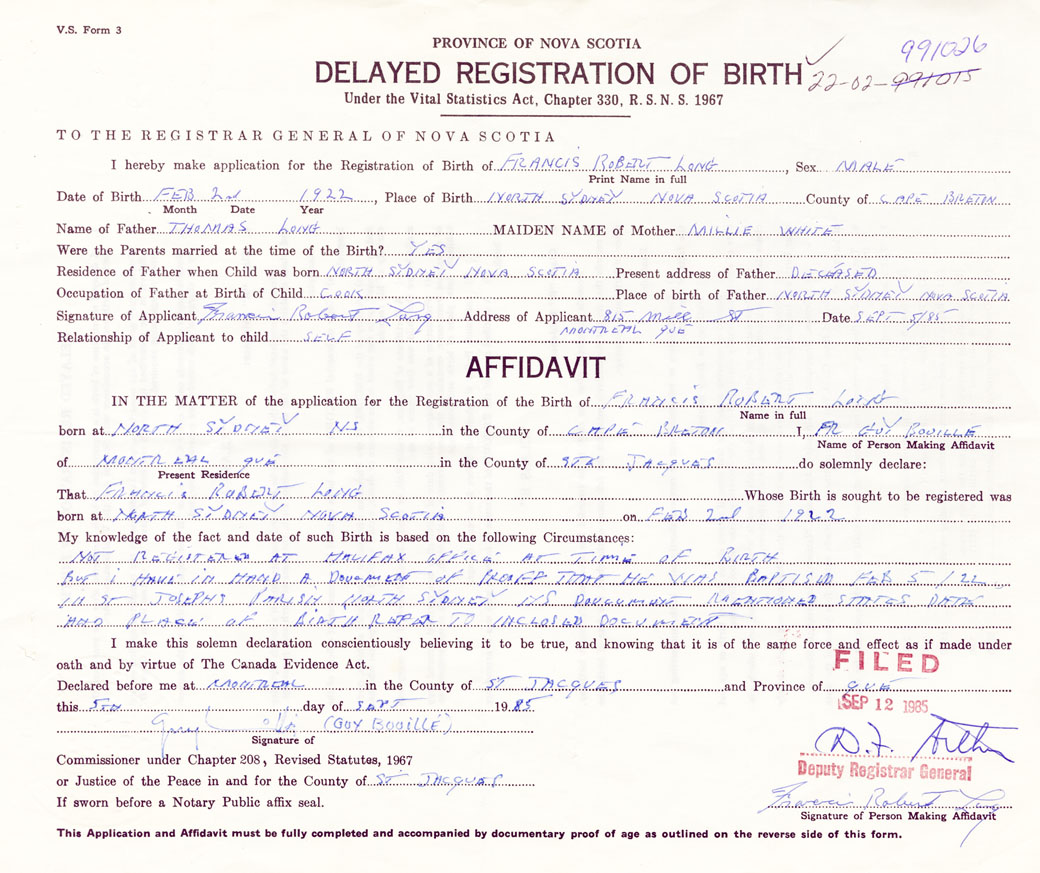 V.S. Form 3
PROVINCE OF NOVA SCOTIA
991026
DELAYED REGISTRATION OF BIRTH
22-02-991015
Under the Vital Statistics Act, Chapter 330, R.S.N.S. 1967
TO THE REGISTRAR GENERAL OF NOVA SCOTIA
I hereby make application for the Registration of Birth of FRANCIS ROBERT LONG, Sex MALE
Print Name in full
Date of Birth FEB 2nd 1922, Place of Birth NORTH SYDNEY NOVA SCOTIA County of CAPE BRETON
Month Date Year
Name of Father THOMAS LONG MAIDEN NAME of Mother MILLIE WHITE
Were the Parents married at the time of the Birth? YES
Residence of Father when Child was born NORTH SYDNEY NOVA SCOTIA Present address of Father DECEASED
Occupation of Father at Birth of Child COOK Place of birth of Father NORTH SYDNEY NOVA SCOTIA
Signature of Applicant Francis Robert Long Address of Applicant 815 Mill ST Date SEPT 5/85
Relationship of Applicant to child SELF MONTREAL QUE
AFFIDAVIT
IN THE MATTER of the application for the Registration of the Birth of FRANCIS ROBERT LONG
Name in full
born at NORTH SYDNEY NS in the County of CAPE BRETON I, FR GUY BOUILLE
Name of Person Making Affidavit
of MONTREAL QUE in the County of STE JACQUES do solemnly declare:
Present Residence
That FRANCIS ROBERT LONG Whose Birth is sought to be registered was
born at NORTH SYDNEY NOVA SCOTIA on FEB 2nd 1922
My knowledge of the fact and date of such Birth is based on the following Circumstances:
NOT REGISTERED AT HALIFAX OFFICE AT TIME OF BIRTH
BUT I HAVE IN HAND A DOUCMENT OF PROOF THAT HE WAS BAPTISED FEB 5/22
IN ST JOSEPHS PARISH NORTH SYDNEY NS DOUCUMENT MENTIONED STATES DATE
AND PLACE OF BIRTH REFER TO INCLOSED DOCUMENT
I make this solemn declaration conscientiously believing it to be true, and knowing that it is of the same force and effect as if made under
oath and by virtue of The Canada Evidence Act.
FILED
Declared before me at MONTREAL in the County of ST JACQUES and Province of QUE
this 5TH day of SEPT 1985
SEP 12 1985
(GUY BOUILLÉ)
Signature of
D.F. Arthur
Commissioner under Chapter 208, Revised Statutes, 1967
Deputy Registrar General
or Justice of the Peace in and for the County of ST JACQUES
Francis Robert Long
If sworn before a Notary Public affix seal.
Signature of Person Making Affidavit
This Application and Affidavit must be fully completed and accompanied by documentary proof of age as outlined on the reverse side of this form.